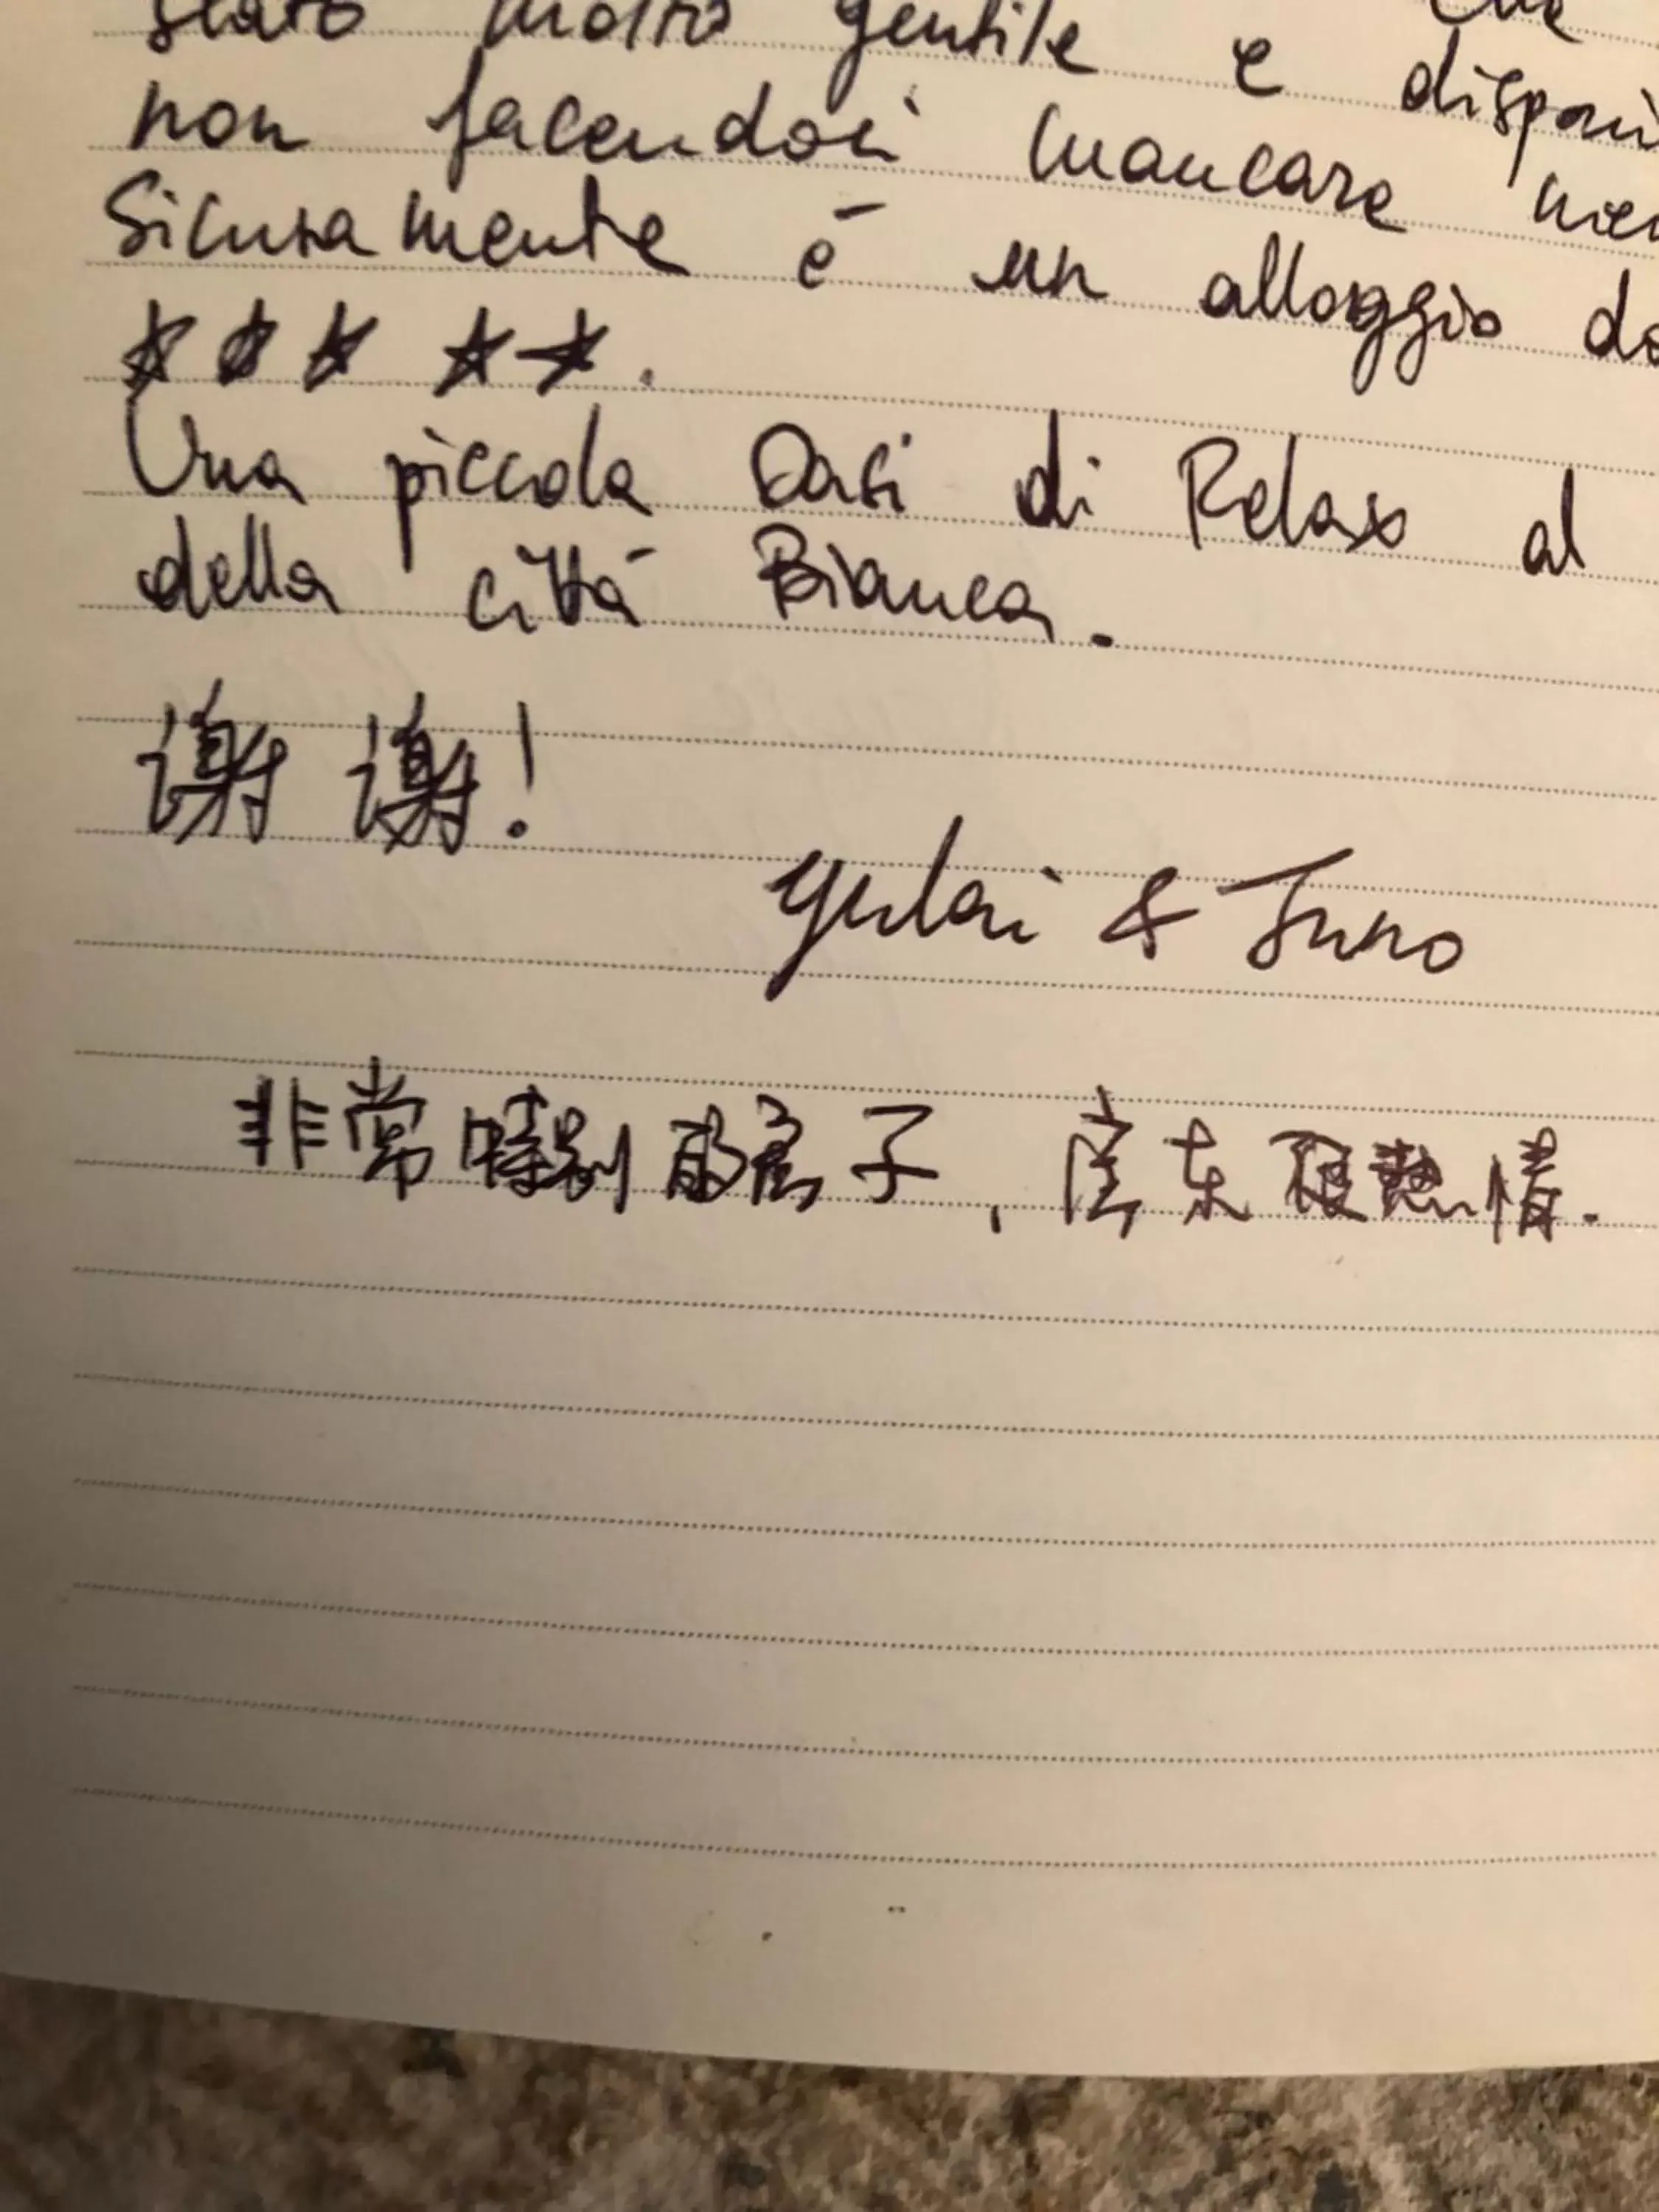 stato molto gentile e
non facendoci mancare
Sicuramente é un alloggio
★★★ ★★.
Una piccola Oasi di Relax al
della cittá Bianca.
谢谢!
Yulai & Juno
非常特别的房子,房东很热情.